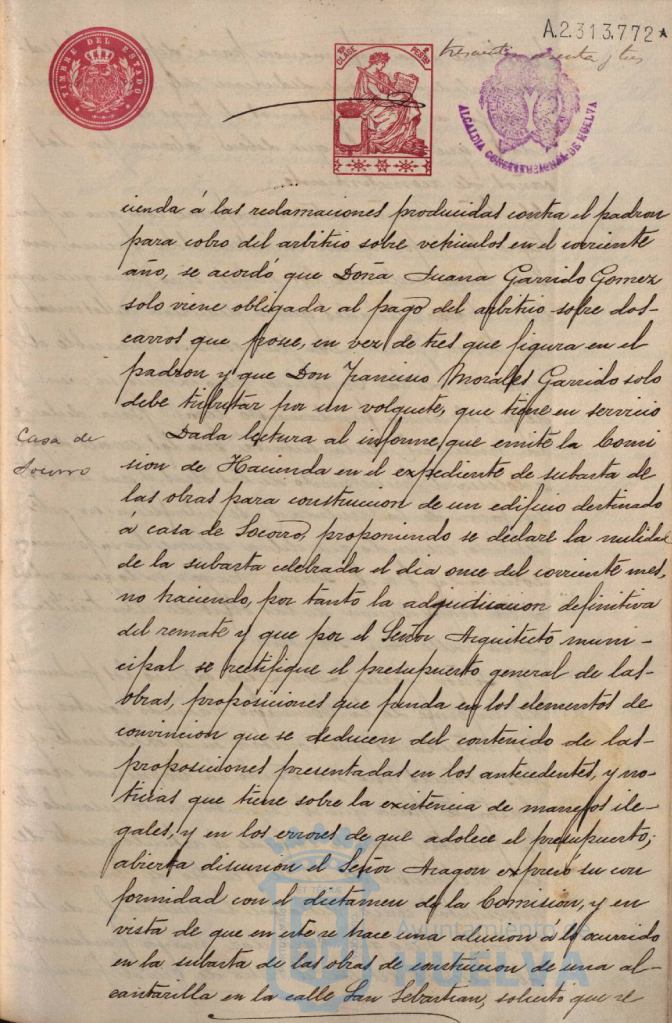 A.2.313.772*
TIMBRE DEL ESTADO
CLASE PESETAS
y tres
ALCALDIA CONSTITUCIONAL DE HUELVA
cienda á las reclamaciones producidas contra el padron
para cobro del arbitrio sobre vehiculos en el corriente
año, se acordó que Doña Juana Garrido Gomez
solo viene obligada al pago del arbitrio sobre dos
carros que posee, en vez de tres que figura en el
padron y que Don Francisco Morales Garrido solo
debe tributar por un volquete, que tiene en servicio
Casa de
Socorro
Dada lectura al informe, que emite la Comi
sion de Hacienda en el expediente de subasta de
las obras para construccion de un edificio destinado
á casa de Socorro, proponiendo se declare la nulidad
de la subasta celebrada el dia once del corriente mes,
no haciendo, por tanto la adjudicacion definitiva
del remate y que por el Señor Arquitecto muni-
cipal se rectifique el presupuesto general de las
obras, proposiciones que funda en los elementos de
conviccion que se deducen del contenido de las
proposiciones presentadas en los antecedentes, y no-
ticias que tiene sobre la existencia de manejos ile-
gales, y en los errores de que adolece el presupuesto;
abierta discusion el Señor Aragon expresó su con
formidad con el dictamen de la Comision, y en
vista de que en este se hace una alusion á lo ocurrido
en la subasta de las obras de construccion de una al-
cantarilla en la calle San Sebastian, solicitó que se
Ayuntamiento de
HUELVA